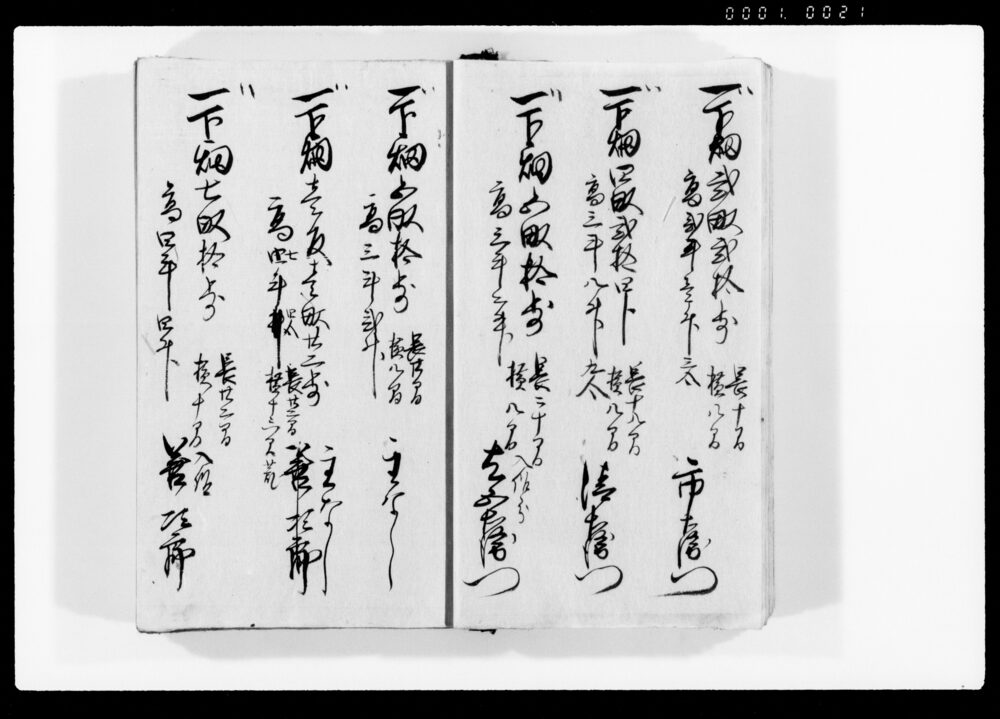 0001. 0021
一下畑弐畝弐拾歩
長十間
横八間
高弐斗三升三合
市左衛門
一下畑四畝弐拾四卜
長十八間
横八間
高三斗八升九合
清左衛門
一下畑五畝拾歩
長二十間
横八間
高三斗二升
入作分
左衛門
一下畑五畝拾歩
横八間
高三斗弐升
主なし
一下畑壱反壱畝廿二歩
長廿二間
横十六間
高七斗
主なし
善次郎
一下畑七畝拾歩
長廿二間
横十間
高四斗四升
入作
善次郎